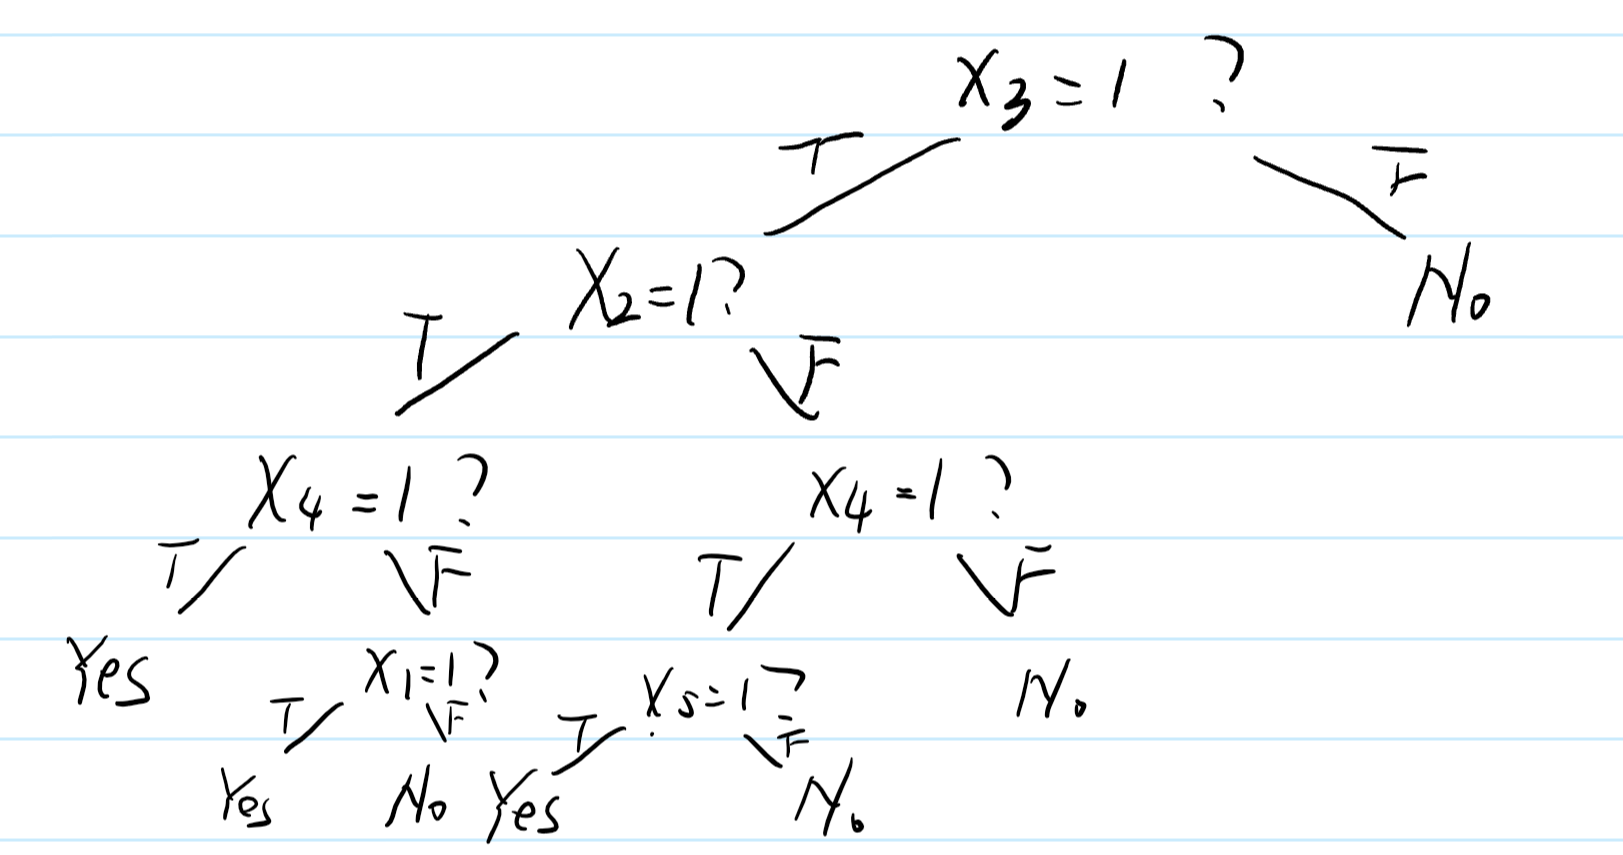 X3 = 1 ?
T F
X2 = 1? No
T F
X4 = 1 ? X4 = 1 ?
T F T F
Yes X1 = 1 ? X5 = 1 ? No
T F T F
Yes No Yes No